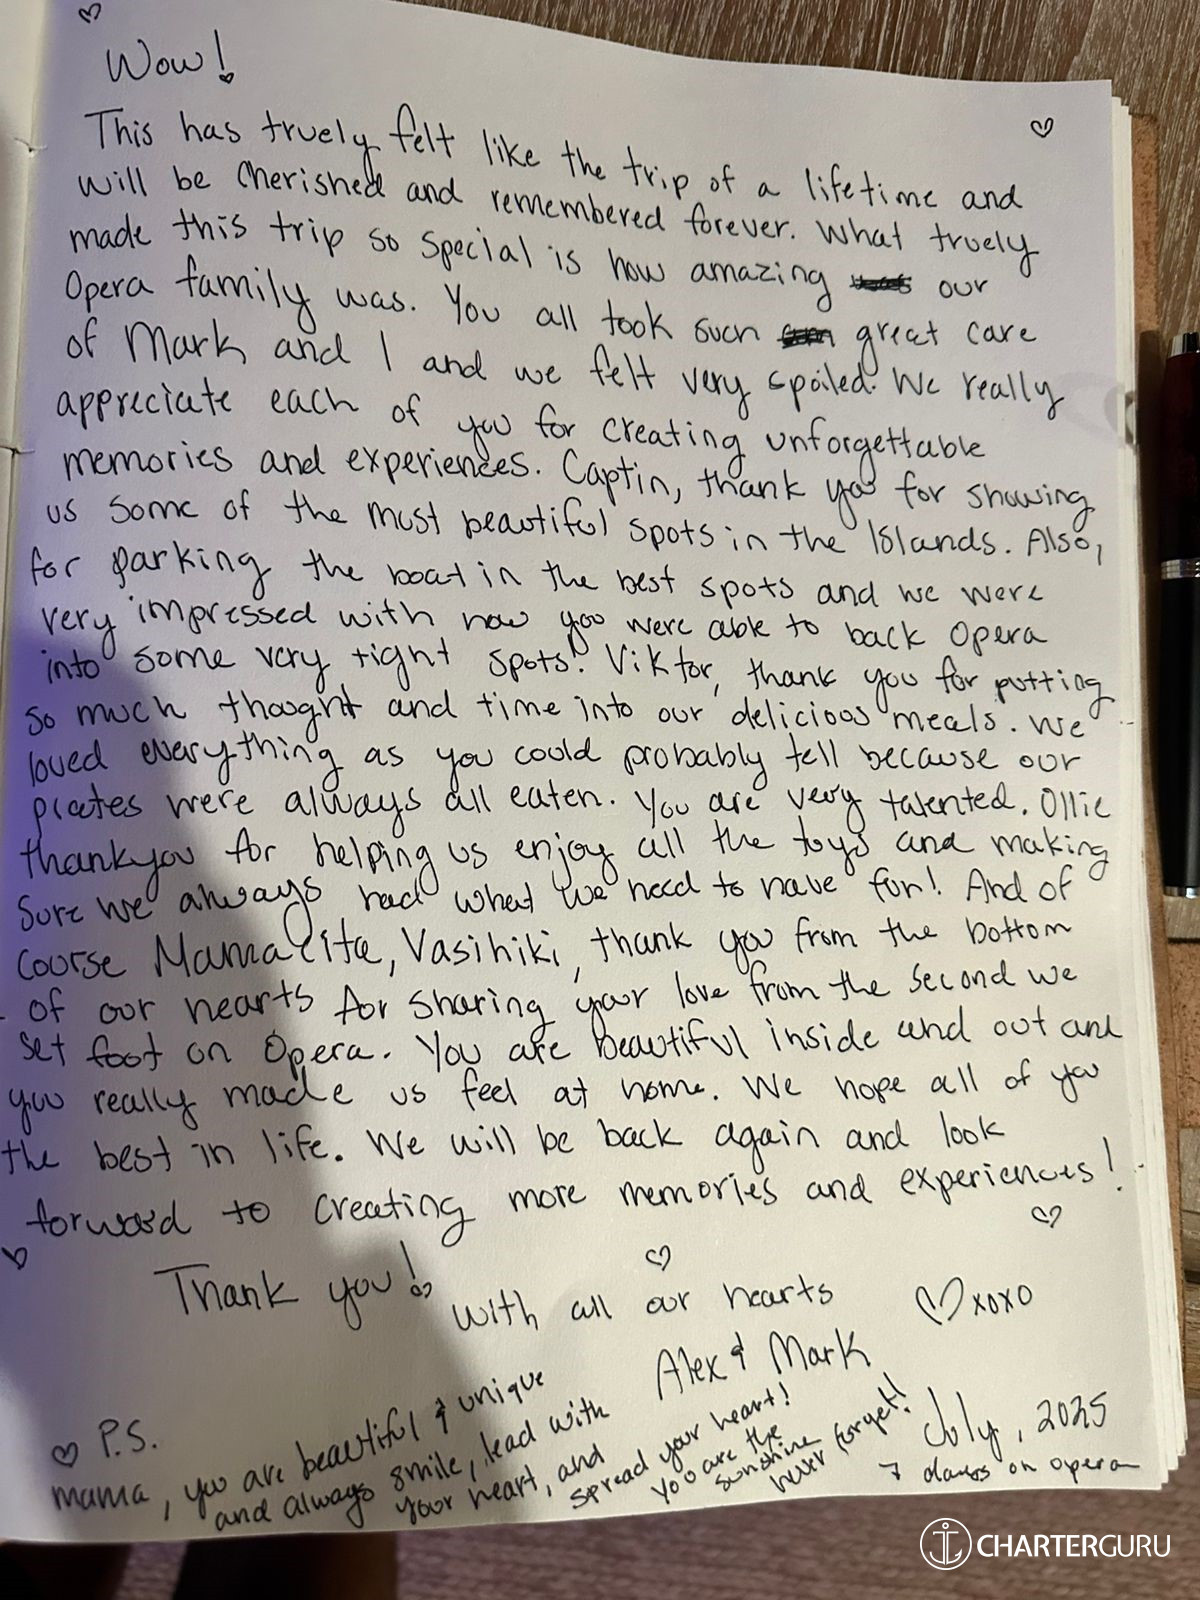 Wow!
This has truely felt like the trip of a lifetime and
will be cherished and remembered forever. What truely
made this trip so special is how amazing our
Opera family was. You all took such great care
of Mark and I and we felt very spoiled. We really
appreciate each of you for creating unforgettable
memories and experiences. Captin, thank you for showing
us some of the most beautiful spots in the Islands. Also,
for parking the boat in the best spots and we were
very impressed with how you were able to back Opera
into some very tight spots! Viktor, thank you for putting
so much thought and time into our delicious meals. We
loved everything as you could probably tell because our
plates were always all eaten. You are very talented. Ollie
thankyou for helping us enjoy all the toys and making
sure we always had what we need to have fun! And of
course Mamacita, Vasihiki, thank you from the bottom
of our hearts for sharing your love from the second we
set foot on Opera. You are beautiful inside and out and
you really made us feel at home. We hope all of you
the best in life. We will be back again and look
forward to creating more memories and experiences!
Thank you!
with all our hearts
xoxo
Alex & Mark
July, 2025
7 days on opera
P.S.
mama, you are beautiful & unique
and always smile, lead with
your heart, and
spread your heart!
You are the
sunshine
never forget!
CHARTERGURU